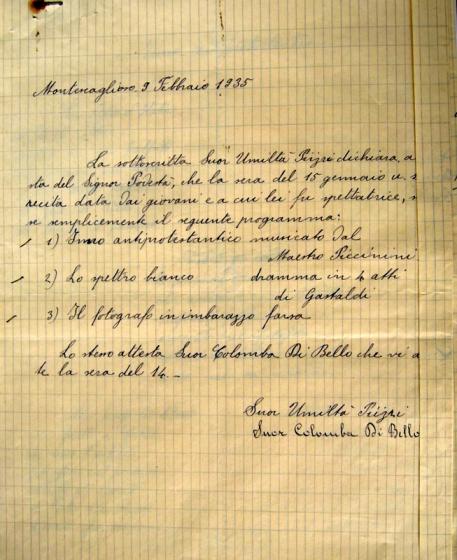 Montescaglioso 9 Febbraio 1935
La sottoscritta Suor Umiltà dichiara, a
sta del Signor Podestà, che la sera del 15 gennaio u. s
recita data dai giovani e a cui lei fu spettatrice, s
se semplicemente il seguente programma:
1) Inno antiprotestantico musicato dal
Maestro Piccinini
2) Lo spettro bianco dramma in 4 atti
di Gastaldi
3) Il fotografo in imbarazzo farsa
Lo stesso attesta Suor Colomba Di Bello che vi a
te la sera del 14._
Suor Umiltà
Suor Colomba Di Bello